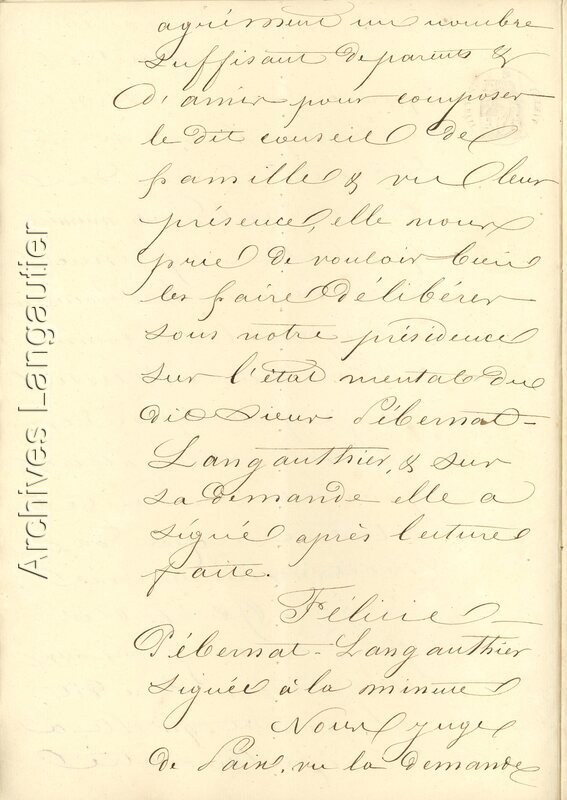 agrément un nombre
suffisant de parents &
d'amis pour composer
le dit conseil de
famille & vu leur
présence, elle nous
prie de vouloir bien
les faire délibérer
sous notre présidence
sur l'état mental du
dit Sieur Pébernat-
Langauthier, & sur
sa demande elle a
signé après lecture
faite.
Félicie
Pébernat-Langauthier
signée à la minute
Nous juge
de Paix, vu la demande
Archives Langautier